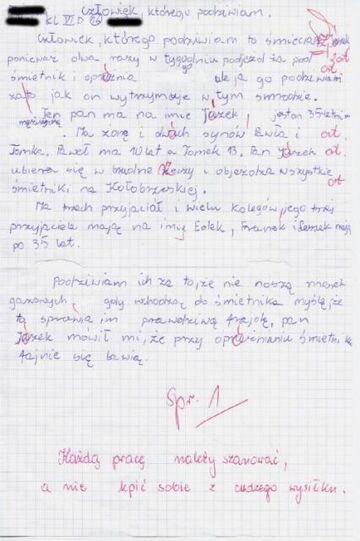 Człowiek, którego podziwiam.
KL VI D
Człowiek, którego podziwiam to śmieciarz, Jarek
ponieważ dwa razy w tygodniu podjeżdża pod
śmietnik i opróżnia ale ja go podziwiam
za to jak on wytrzymuje w tym smrodzie.
Ten pan ma na imie Jarek, jest on 35letnim
mężczyzną. Ma żonę i dwóch synów Pawła i
Tomka. Paweł ma 10 lat a Tomek 13. Pan Jarek
ubiera się w brudne rzeczy i objeżdża wszystkie
śmietniki na Kołobrzeskiej.
Ma trzech przyjaciół i wielu kolegów, jego trzej
przyjaciele mają na imię Edek, Franek i Leszek mają
po 35 lat.
Podziwiam ich za to, że nie noszą masek
gazowych, gdy wchodzą do śmietnika myślę, że
to sprawia im prawdziwą frajdę, pan
Jarek mówił mi, że przy opróżnianiu śmietnika
fajnie się bawią.
Spr. 1
Każdą pracę należy szanować,
a nie kpić sobie z cudzego wysiłku.